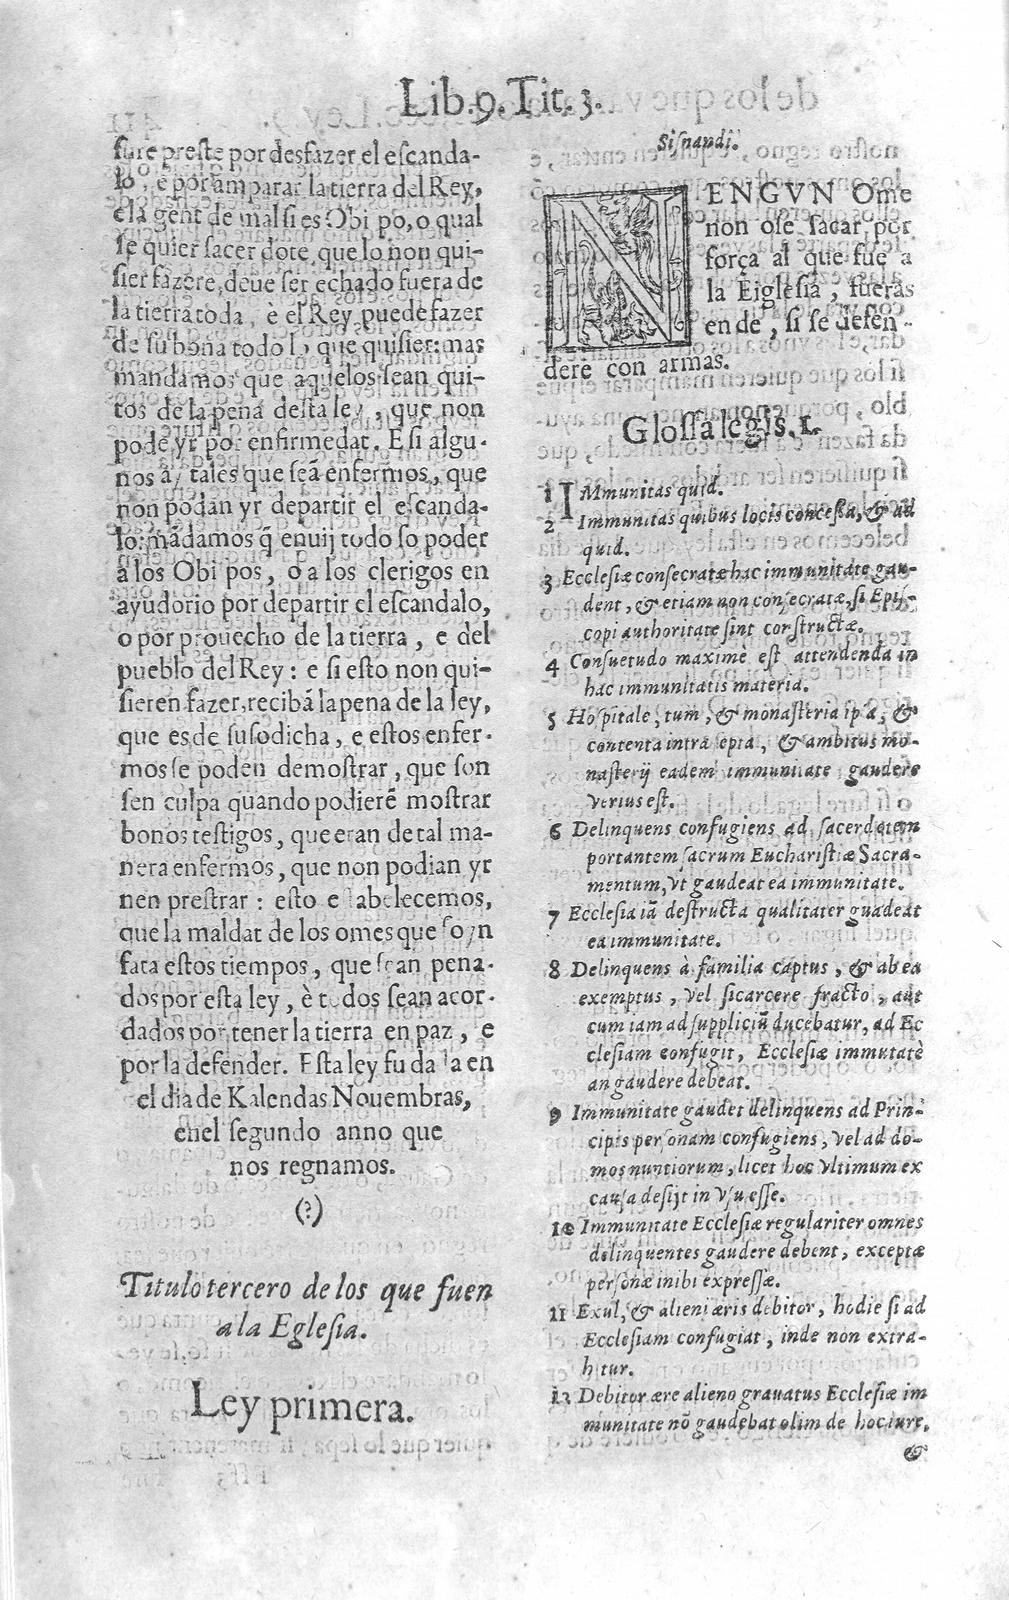 Lib.9.Tit.3.
fure preste por desfazer el escanda-
lo, e por amparar la tierra del Rey,
e la gent de mal si es Obispo, o qual
se quier sacerdote, que lo non qui-
sier fazere, deve ser echado fuera de
la tierra toda, è el Rey puede fazer
de su bona todo lo que quisier: mas
mandamos que aquelos sean qui-
tos de la pena desta ley, que non
pode yr por enfirmedat. E si algu-
nos ay tales que seā enfermos, que
non podan yr departir el escanda-
lo: mādamos q̄ enuij todo so poder
a los Obispos, o a los clerigos en
ayudorio por departir el escandalo,
o por prouecho de la tierra, e del
pueblo del Rey: e si esto non qui-
sieren fazer, recibā la pena de la ley,
que es de susodicha, e estos enfer-
mos se poden demostrar, que son
sen culpa quando podierē mostrar
bonos testigos, que eran de tal ma-
nera enfermos, que non podian yr
nen prestrar: esto establecemos,
que la maldat de los omes que
fata estos tiempos, que sean pena-
dos por esta ley, è todos sean acor-
dados por tener la tierra en paz, e
por la defender. Esta ley fu dada en
el dia de Kalendas Nouembras,
enel segundo anno que
nos regnamos.
(?)
Titulo tercero de los que fuen
a la Eglesia.
Ley primera.
Sisnandi.
NENGVN Ome
non ose sacar por
força al que fue a
la Eiglesia, fueras
ende, si se defen-
dere con armas.
Glossa legis. 1.
1 IMmunitas quid.
2 Immunitas quibus locis concessa, & ad
quid.
3 Ecclesiæ consecratæ hac immunitate gau-
dent, & etiam non consecratæ, si Epis-
copi authoritate sint constructæ.
4 Consuetudo maximè est attendenda in
hac immunitatis materia.
5 Hospitale, tum, & monasteria ipsa, &
contenta intra septa, & ambitus mo-
nasterij eadem immunitate gaudere
verius est.
6 Delinquens confugiens ad sacerdotem
portantem sacrum Eucharistiæ Sacra-
mentum, vt gaudeat ea immunitate.
7 Ecclesia iā destructa qualitater guadeat
ea immunitate.
8 Delinquens à familia captus, & ab ea
exemptus, vel si carcere fracto, aut
cum iam ad suppliciū ducebatur, ad Ec
clesiam confugit, Ecclesiæ immutatè
an gaudere debeat.
9 Immunitate gaudet delinquens ad Prin-
cipis personam confugiens, vel ad do-
mos nuntiorum, licet hoc vltimum ex
causa desijt in vsu esse.
10 Immunitate Ecclesiæ regulariter omnes
delinquentes gaudere debent, exceptæ
personæ inibi expressæ.
11 Exul, & alieni æris debitor, hodie si ad
Ecclesiam confugiat, inde non extra-
htur.
12 Debitor ære alieno grauatus Ecclesiæ im
munitate nō gaudebat olim de hoc iure,
&